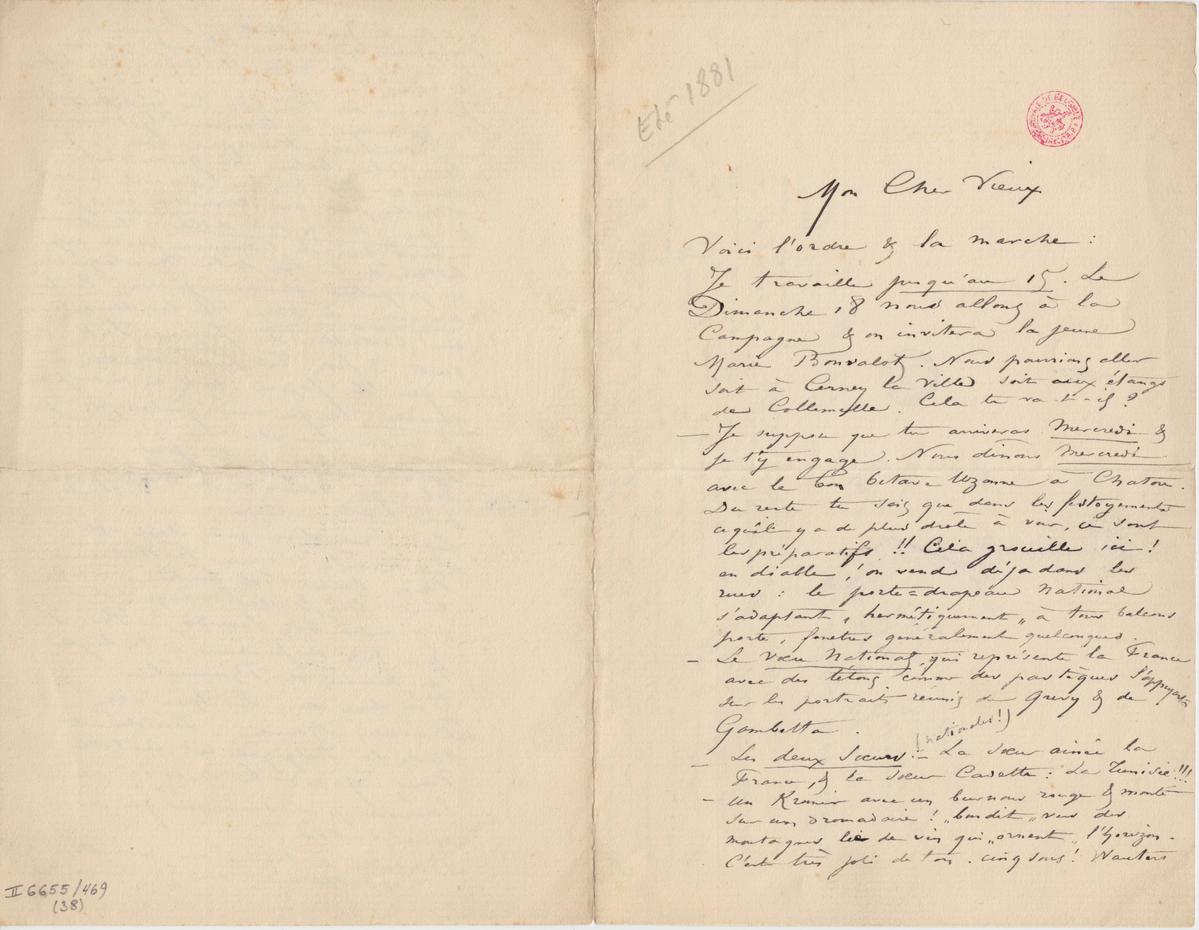 Eté 1881
Mon Cher Vieux
Voici l'ordre & la marche :
Je travaille jusqu'au 15. Le
Dimanche 18 nous allons à la
Campagne & on invitera la jeune
Marie Bonvalot. Nous pourrions aller
soit à Cerney la Ville soit aux étangs
de Collemelle. Cela te va-t-il ?
— Je suppose que tu arriveras Mercredi &
je t'y engage. Nous dinons Mercredi
avec le bon Octave Uzanne à Chatou.
Du reste tu sais que dans les festoyements
ce qu'il y a de plus drole à voir, ce sont
les préparatifs !! Cela grouille ici !
en diable ! on vend déja dans les
rues : le porte=drapeau national
s'adaptant „ hermétiquement „ à tous balcons
porte, fenetres généralement quelconques.
— Le Vœu National, qui représente la France
avec des tétons comme des pastèques s'appuyant
sur les portraits réunis de Grevy & de
Gambetta.
— Les deux Sœurs (nationales !) — La sœur ainée la
France, & la sœur Cadette : La Tunisie !!!
— Un Kromir avec un burnous rouge & monté
sur un dromadaire ! „bondit„ vers des
montagnes lie de vin qui „ornent„ l'horizon.
C'est très joli de ton. cinq sous ! Wauters
II 6655/469
(38)